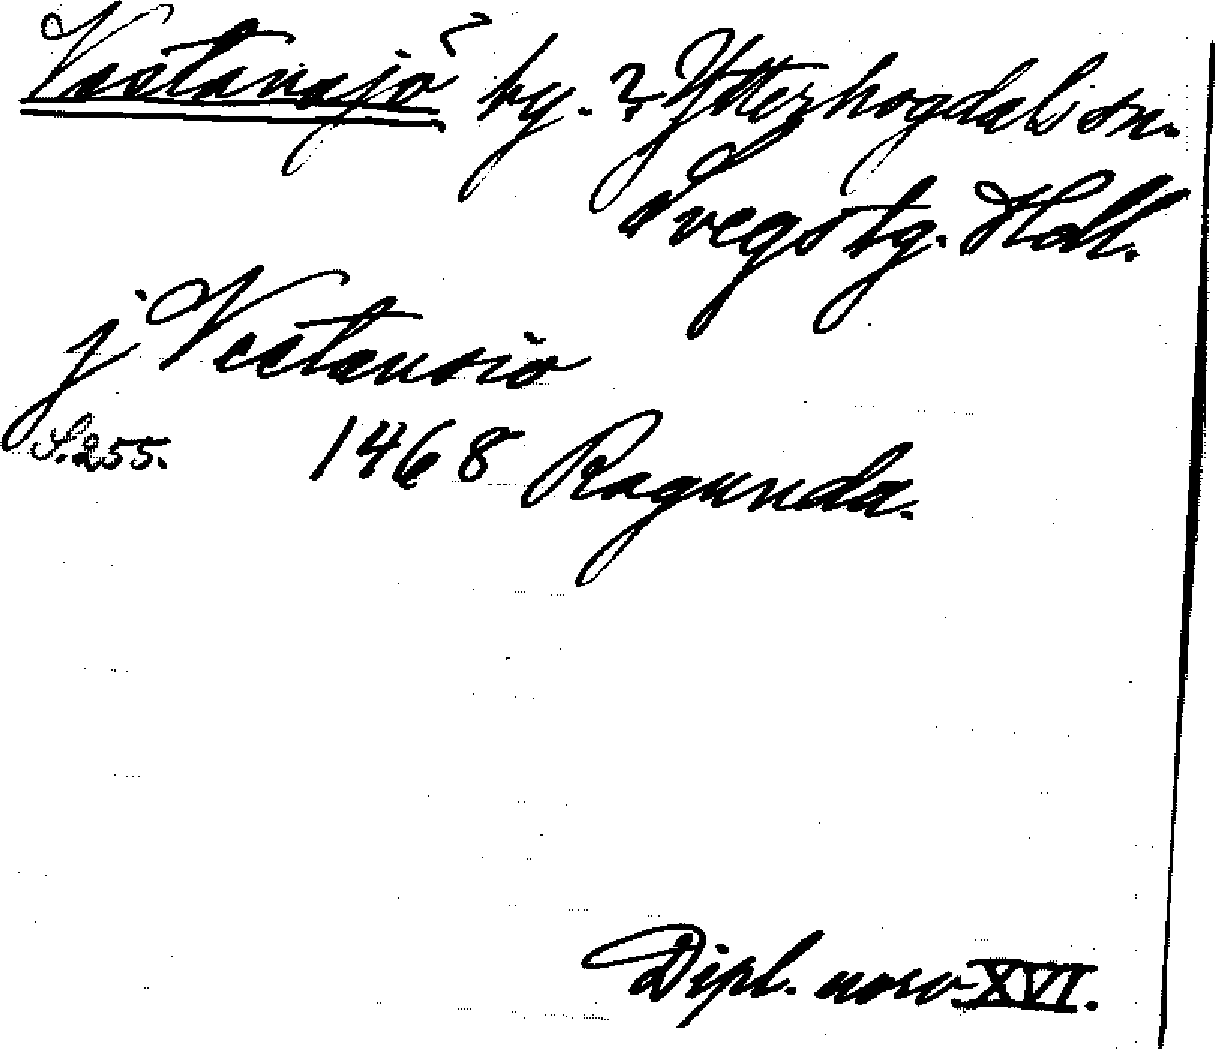 Västansjö by. ? Ytterhogdals sn.
Svegs tg. Häll.
j Vestansio
S. 255. 1468 Ragunda.
Dipl. norv. XVI.